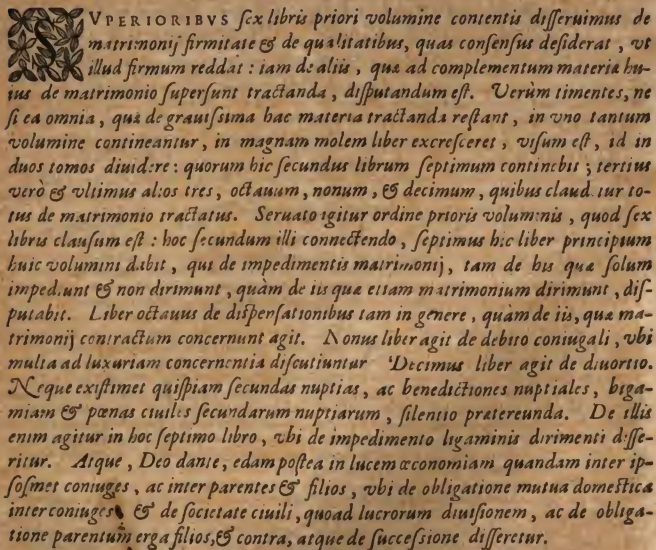 SVPERIORIBVS sex libris priori volumine contentis disseruimus de
matrimonij firmitate & de qualitatibus, quas consensus desiderat, vt
illud firmum reddat: iam de aliis, quæ ad complementum materiæ hu-
ius de matrimonio supersunt tractanda, disputandum est. Verùm timentes, ne
si ea omnia, quæ de grauissima hac materia tractanda restant, in vno tantum
volumine contineantur, in magnam molem liber excresceret, visum est, id in
duos tomos diuidere: quorum hic secundus librum septimum continebit; tertius
verò & vltimus alios tres, octauum, nonum, & decimum, quibus clauditur to-
tus de matrimonio tractatus. Seruato igitur ordine prioris voluminis, quod sex
libris clausum est: hoc secundum illi connectendo, septimus hic liber principium
huic volumini dabit, qui de impedimentis matrimonij, tam de his quæ solum
impediunt & non dirimunt, quàm de iis quæ etiam matrimonium dirimunt, dis-
putabit. Liber octauus de dispensationibus tam in genere, quàm de iis, quæ ma-
trimonij contractum concernunt agit. Nonus liber agit de debito coniugali, vbi
multa ad luxuriam concernentia discutiuntur Decimus liber agit de diuortio.
Neque existimet quispiam secundas nuptias, ac benedictiones nuptiales, biga-
miam & pœnas ciuiles secundarum nuptiarum, silentio prætereunda. De illis
enim agitur in hoc septimo libro, vbi de impedimento ligaminis dirimenti disse-
ritur. Atque, Deo dante, edam postea in lucem œconomiam quandam inter ip-
sosmet coniuges, ac inter parentes & filios, vbi de obligatione mutua domestica
inter coniuges & de societate ciuili, quoad lucrorum diuisionem, ac de obliga-
tione parentum erga filios, & contra, atque de successione disseretur.